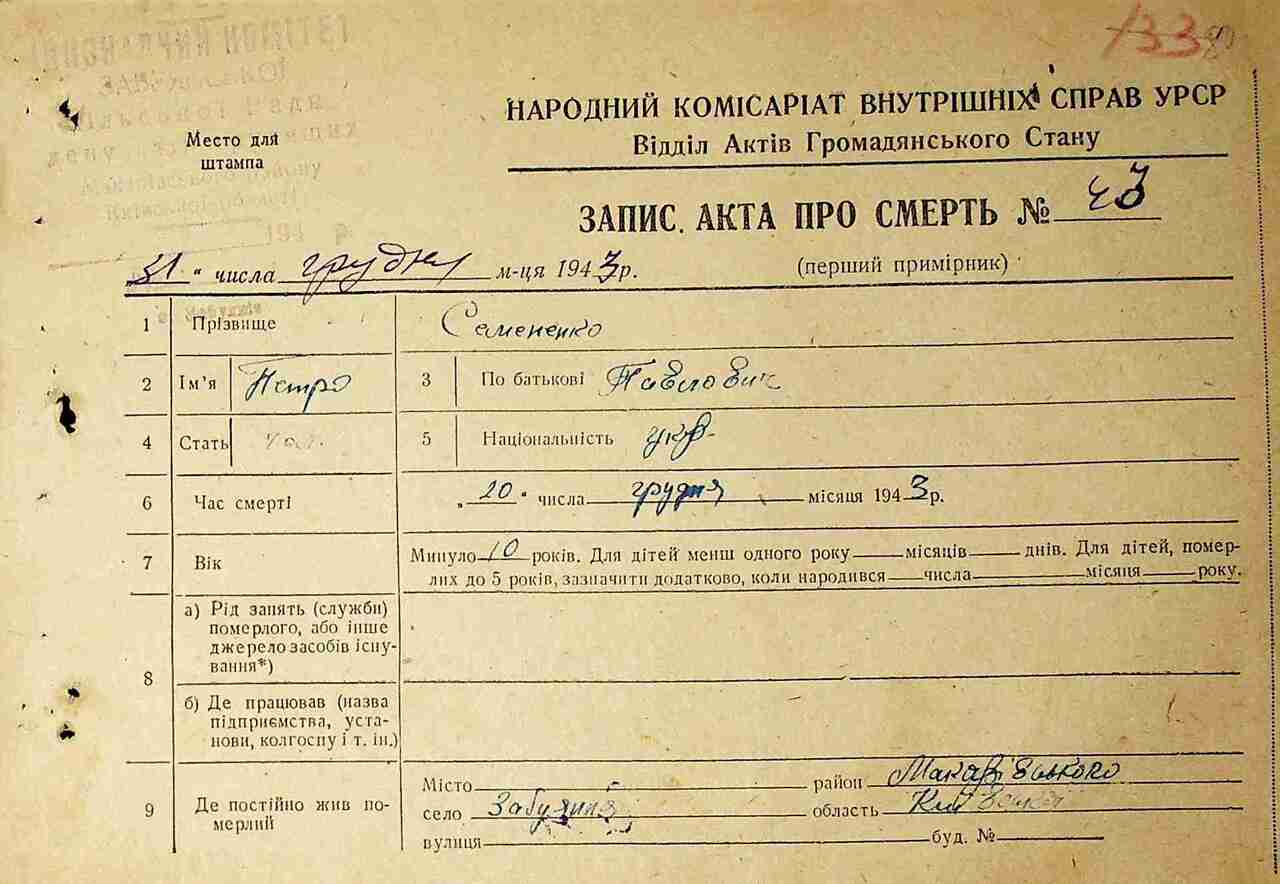 133
НАРОДНИЙ КОМІСАРІАТ ВНУТРІШНІХ СПРАВ УРСР
Відділ Актів Громадянського Стану
Место для
штампа
ЗАПИС. АКТА ПРО СМЕРТЬ №
„31“ числа грудня м-ця 1943 р. (перший примірник)
1 Прізвище Семененко
2 Ім’я Петро 3 По батькові Павлович
4 Стать чол. 5 Національність укр.
6 Час смерті „20“ числа грудня місяця 1943 р.
7 Вік Минуло 10 років. Для дітей менш одного року місяців днів. Для дітей, помер-
лих до 5 років, зазначити додатково, коли народився числа місяця року.
8 а) Рід занять (служби)
померлого, або інше
джерело засобів існу-
вання*)
б) Де працював (назва
підприємства, уста-
нови, колгоспу і т. ін.)
9 Де постійно жив по-
мерлий
Місто район Макарівського
село Забуяння область Київської
вулиця буд. №